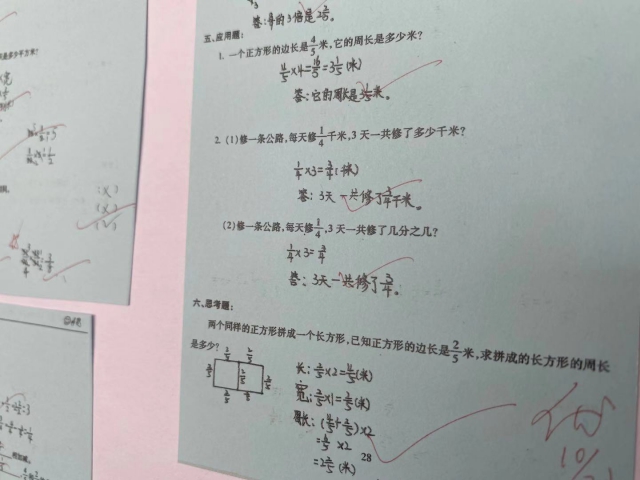 答:的3倍是
五、应用题:
1. 一个正方形的边长是4/5米,它的周长是多少米?
4/5×4=16/5=3 1/5(米)
答:它的周长是3 1/5米。
2. (1)修一条公路,每天修1/4千米,3天一共修了多少千米?
1/4×3=3/4(千米)
答:3天一共修了3/4千米。
(2)修一条公路,每天修1/4,3天一共修了几分之几?
1/4×3=3/4
答:3天一共修了3/4。
六、思考题:
两个同样的正方形拼成一个长方形,已知正方形的边长是2/5米,求拼成的长方形的周长
是多少?
2/5 2/5
2/5 2/5 2/5
2/5 2/5
长:2/5×2=4/5(米)
宽:2/5×1=2/5(米)
周长:(4/5+2/5)×2
=6/5×2
=2 2/5(米)
28
优
10/
是多少平方米?
(×)
(×)
(√)